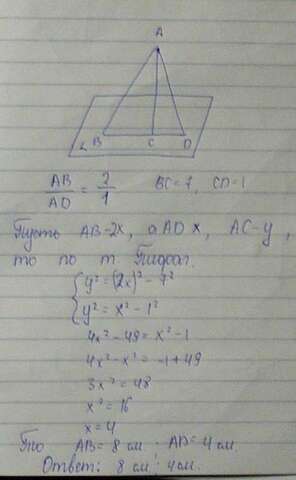 A
B C D
α
AB/AD = 2/1 BC=7, CD=1
Пусть AB-2x, а AD x, AC-y,
то по т. Пифаг.
{ y² = (2x)² - 7²
y² = x² - 1²
4x² - 49 = x² - 1
4x² - x² = -1 + 49
3x² = 48
x² = 16
x = 4
AB = 8 см. AD = 4 см.
Ответ: 8 см; 4 см.